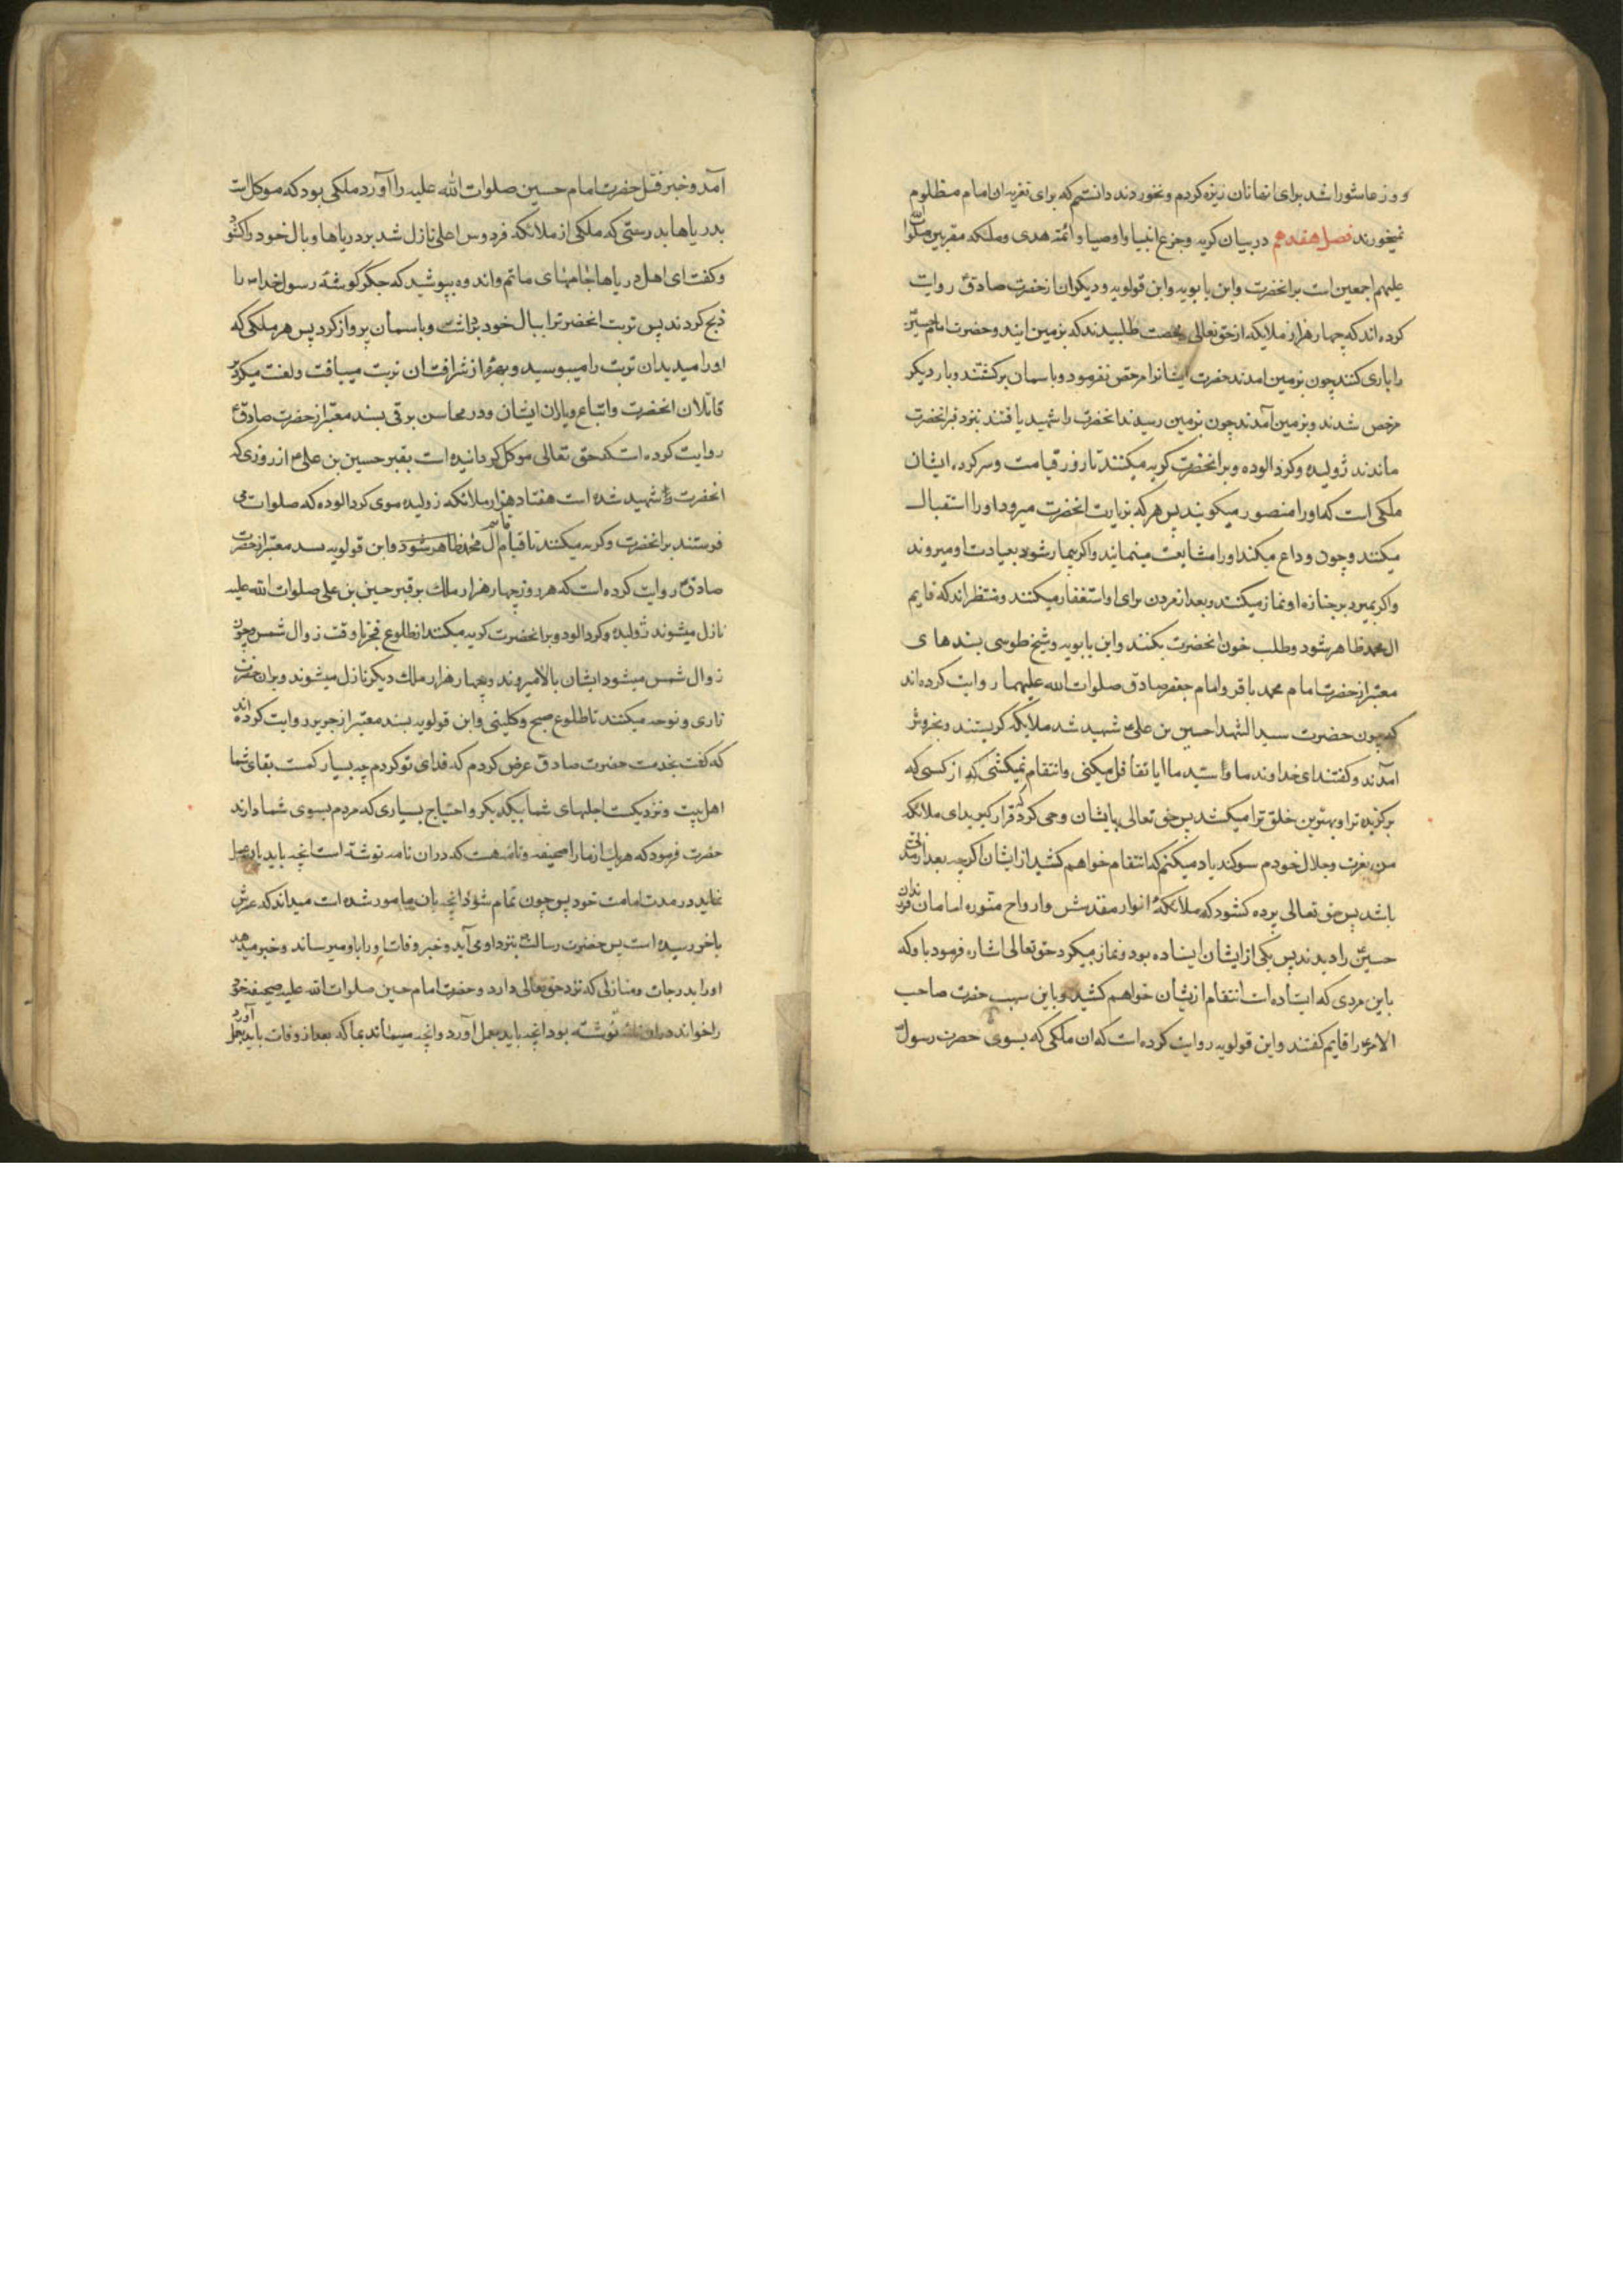 و روز عاشورا شد برای انها نان ریزه کردم و نخوردند دانستم که برای تعزیه ان امام مظلوم
نمیخورند فصل هفدهم در بیان کریه و جزع انبیا و اوصیا و ائمّه هدی و ملئکه مقربین صلوات الله
علیهم اجمعین است بر انحضرت و ابن بابویه و ابن قولویه و دیکران از حضرت صادق ع روایت
کرده اند که چهار هزار ملایکه از حق تعالی رخصت طلبیدند که بزمین ایند و حضرت امام حسین
را یاری کنند چون بزمین امدند حضرت ایشانرا مرخص نفرمود و باسمان برکشتند و بار دیکر
مرخص شدند و بزمین آمدند چون بزمین رسیدند انحضرت را شهید یافتند بنزد قبر انحضرت
ماندند ژولیده و کرد الوده و بر انحضرت کریه میکنند تا روز قیامت و سرکرده ایشان
ملکی است که او را منصور میکویند پس هر که بزیارت انحضرت میرود او را استقبال
میکنند و چون وداع میکند او را مشایعت مینمایند و اکر بیمار شود بعیادت او میروند
و اکر بمیرد بر جنازه او نماز میکنند و بعد از مردن برای او استغفار میکنند و منتظراند که قایم
ال محمد ظاهر شود و طلب خون انحضرت بکنند و ابن بابویه و شیخ طوسی بسندهای
معتبر از حضرت امام محمد باقر و امام جعفر صادق صلوات الله علیهما روایت کرده اند
که چون حضرت سید الشهدا حسین بن علی ع شهید شد ملایکه کریستند و بخروش
آمدند و کفتند ای خداوند ما و سید ما ایا تغافل میکنی و انتقام نمیکشی از کسی که
برکزیده ترا و بهترین خلق ترا میکشد پس حق تعالی بایشان وحی کرد که قرار کیرید ای ملائکه
من بعزت و جلال خودم سوکند یاد میکنم که انتقام خواهم کشید از ایشان اکر چه بعد از مدتی
باشد پس حق تعالی پرده کشود که ملائکه انوار مقدسش و ارواح منوره امامان فرزندان
حسین را دیدند پس یکی از ایشان ایستاده بود و نماز میکرد حق تعالی اشاره فرمود باو که
باین مردی که ایستاده است انتقام از یشان خواهم کشید و باین سبب حضرت صاحب
الامر ع را قایم کفتند و ابن قولویه روایت کرده است که ان ملکی که بسوی حضرت رسول ص
آمد و خبر قتل حضرت امام حسین صلوات الله علیه را آورد ملکی بود که موکل است
بدریاها بدرستی که ملکی از ملائکه فردوس اعلی نازل شد بر دریاها و بال خود را کشود
و کفت ای اهل دریاها جامهای ماتم و اندوه بپوشید که جکرکوشه رسول خدا ص را
ذبح کردند پس تربت انحضرترا ببال خود برداشت و باسمان پرواز کرد پس هر ملکی که
او را میدید ان تربت را میبوسید و بهره از شرافت ان تربت میبافت و لعنت میکرد بر
قاتلان انحضرت و اتباع و یاران ایشان و در محاسن برقی بسند معتبر از حضرت صادق ع
روایت کرده است که حق تعالی موکل کردانیده است بقبر حسین بن علی ع از روزی که
انحضرت شهید شده است هفتاد هزار ملائکه ژولیده موی کرد الوده که صلوات می
فرستند بر انحضرت و کریه میکنند تا قیام قایم آل محمد ظاهر شود و ابن قولویه بسند معتبر از حضرت
صادق ع روایت کرده است که هر روز چهار هزار ملك بر قبر حسین بن علی صلوات الله علیه
نازل میشوند ژولیده و کرد الود و بر انحضرت کریه میکنند از طلوع فجر تا وقت زوال شمس و چون
زوال شمس میشود ایشان بالا میروند و چهار هزار ملك دیکر نازل میشوند و بر ان حضرت
زاری و نوحه میکنند تا طلوع صبح و کلینی و ابن قولویه بسند معتبر از جریر روایت کرده اند
که کفت بخدمت حضرت صادق عرض کردم که فدای تو کردم چه بسیار کمست بقای شما
اهل بیت و نزدیکست اجلهای شما بیکدیکر و احتیاج بسیاری که مردم بسوی شما دارند
حضرت فرمود که هر یك از ما را صحیفه و نامه هست که در ان نامه نوشته است انچه باید بان عمل
نماید در مدت امامت خود پس چون تمام شود انچه بان مامور شده است میداند که عمرش
باخر رسیده است پس حضرت رسالت ص بنزد او می آید و خبر وفات او را باو میرساند و خبر میدهد
او را بدرجات و منازلی که نزد حق تعالی دارد و حضرت امام حسین صلوات الله علیه صحیفه خود
را خواند در ان نوشته بود انچه باید بعمل آورد و انچه میماند بما که بعد از وفات باید بعمل آورد